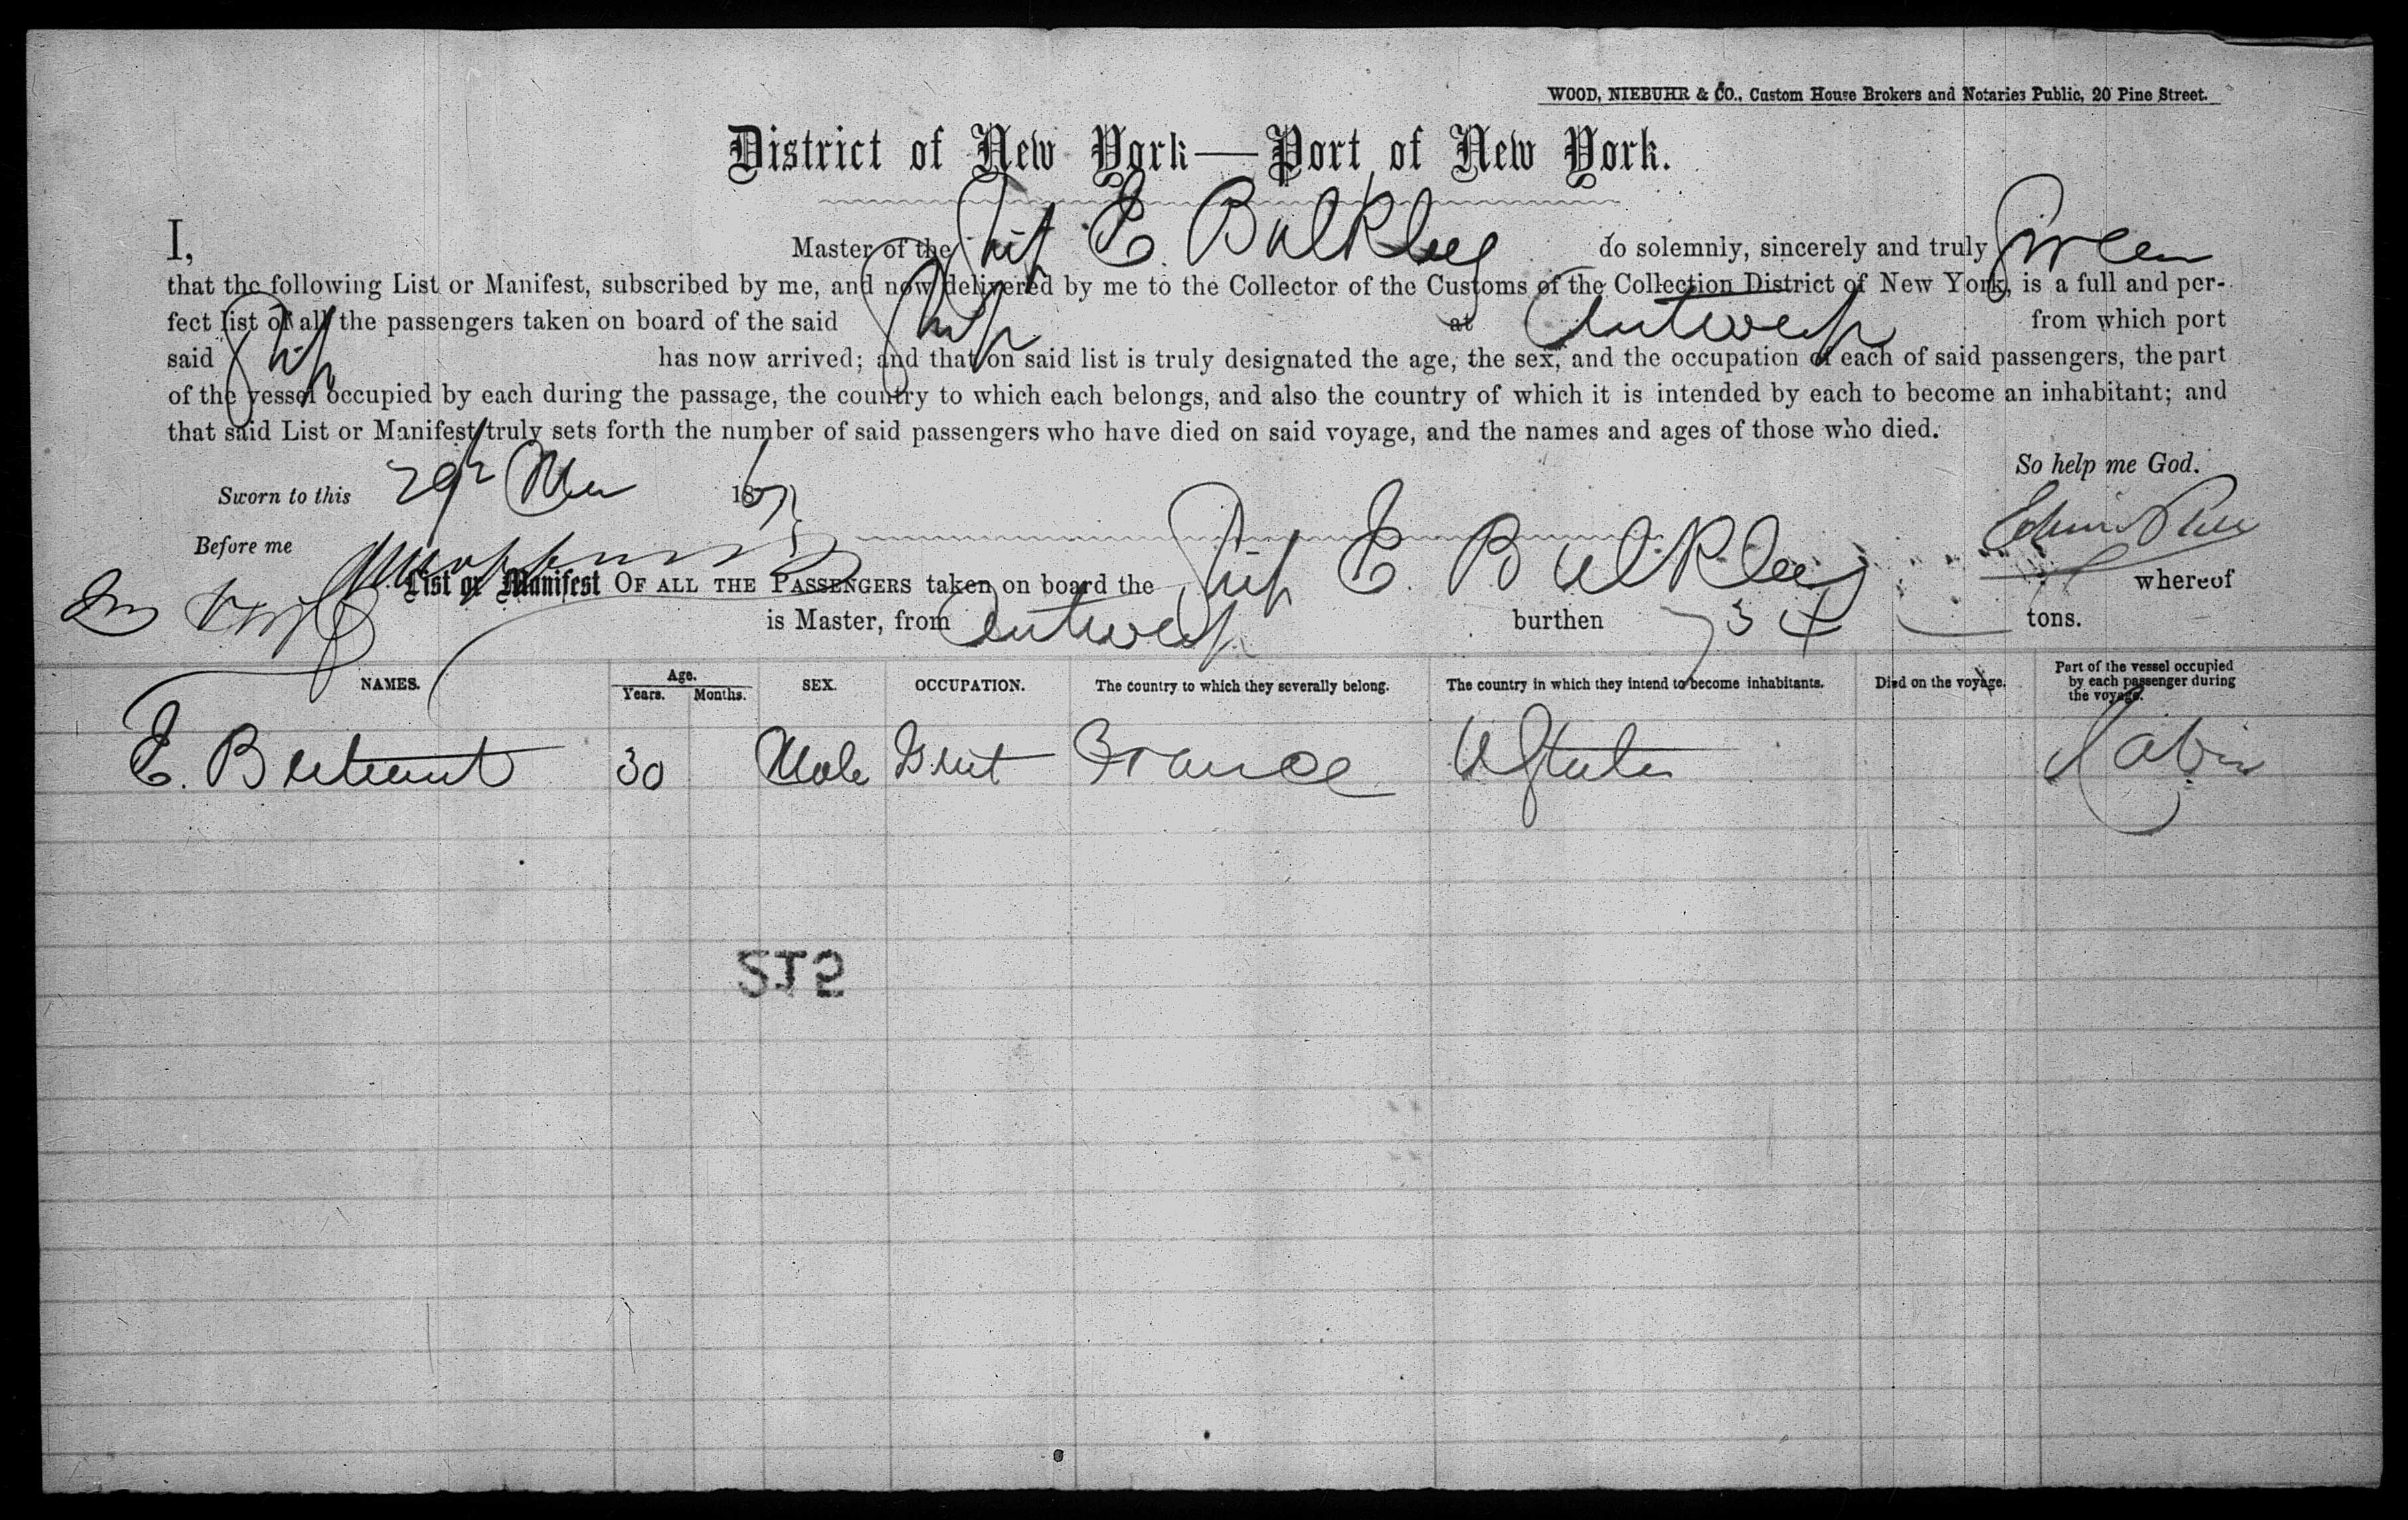 WOOD, NIEBUHR & CO., Custom House Brokers and Notaries Public, 20 Pine Street.
District of New York—Port of New York.
I, Master of the Ship E. Bulkley do solemnly, sincerely and truly swear
that the following List or Manifest, subscribed by me, and now delivered by me to the Collector of the Customs of the Collection District of New York, is a full and per-
fect list of all the passengers taken on board of the said Ship at Antwerp from which port
said Ship has now arrived; and that on said list is truly designated the age, the sex, and the occupation of each of said passengers, the part
of the vessel occupied by each during the passage, the country to which each belongs, and also the country of which it is intended by each to become an inhabitant; and
that said List or Manifest truly sets forth the number of said passengers who have died on said voyage, and the names and ages of those who died.
So help me God.
Sworn to this 29th 186
Before me
List or Manifest OF ALL THE PASSENGERS taken on board the Ship E. Bulkley whereof
is Master, from Antwerp burthen 734 tons.
NAMES. Age. Years. Months. SEX. OCCUPATION. The country to which they severally belong. The country in which they intend to become inhabitants. Died on the voyage. Part of the vessel occupied by each passenger during the voyage.
E. 30 Male Gent France U States Cabin
215